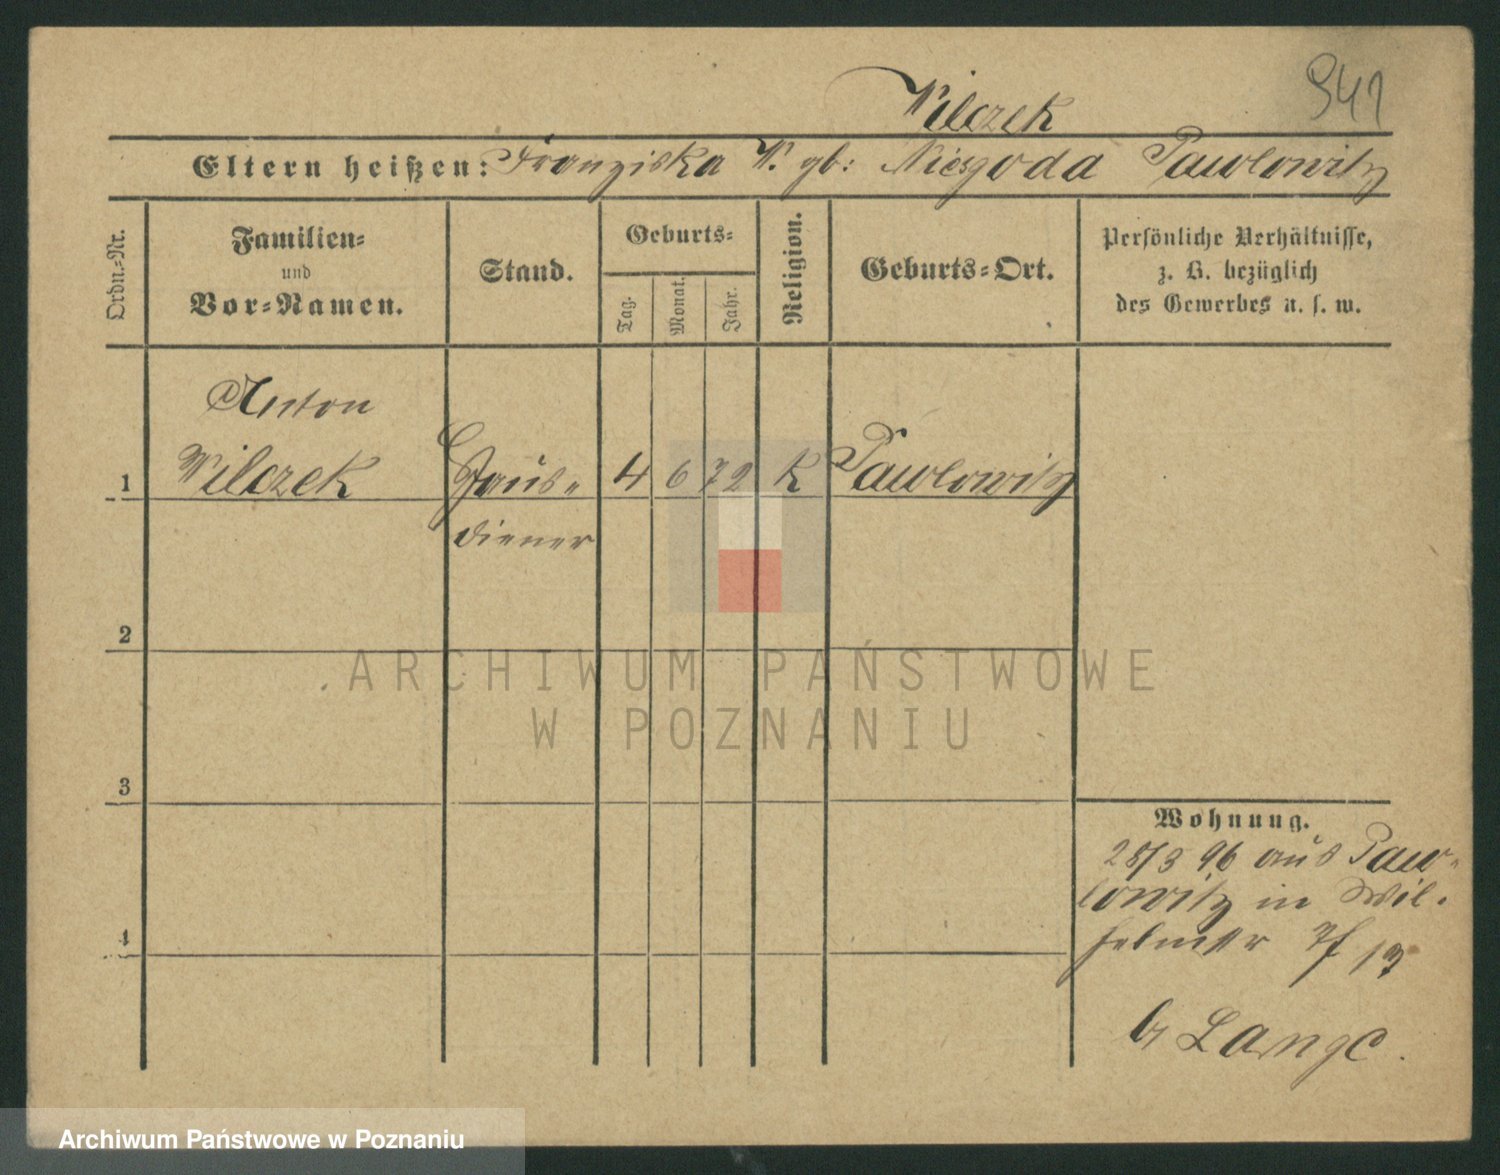 941
Wilczek
Eltern heißen: Franziska W. gb: Niesgoda Pawlowitz
Ordn.-Nr.
Familien-
und
Vor-Namen.
Stand.
Geburts-
Tag.
Monat.
Jahr.
Religion.
Geburts-Ort.
Persönliche Verhältnisse,
z. B. bezüglich
des Gewerbes u. s. w.
Anton
1 Wilczek Haus- 4 6 72 K Pawlowitz
diener
2
ARCHIWUM PAŃSTWOWE
W POZNANIU
3
Wohnung.
28/3 96 aus Paw-
lowitz in Wil-
helmstr 17
4
b Lange
Archiwum Państwowe w Poznaniu